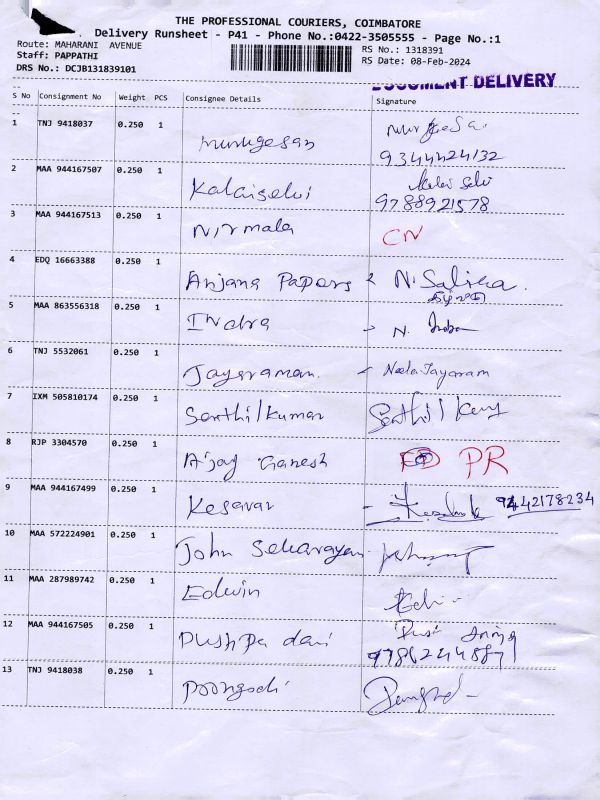 THE PROFESSIONAL COURIERS, COIMBATORE
Delivery Runsheet - P41 - Phone No.:0422-3505555 - Page No.:1
Route: MAHARANI AVENUE
RS No.: 1318391
Staff: PAPPATHI
RS Date: 08-Feb-2024
DRS No.: DCJB131839101
DOCUMENT DELIVERY
S No Consignment No Weight PCS Consignee Details Signature
1 TNJ 9418037 0.250 1 murugesan
9344424132
2 MAA 944167507 0.250 1 Kalaiselvi Kalai Selvi
9788921578
3 MAA 944167513 0.250 1 Nirmala CN
4 EDQ 16663388 0.250 1 Anjana Papers N. 
5 MAA 863556318 0.250 1 Indra N. Indra
6 TNJ 5532061 0.250 1 Jayaraman Neela Jayaram
7 IXM 505810174 0.250 1 Senthilkumar
8 RJP 3304570 0.250 1 Ajay Ganesh PR
9 MAA 944167499 0.250 1 Kesavan 9442178234
10 MAA 572224901 0.250 1 John
11 MAA 287989742 0.250 1 Edwin
12 MAA 944167505 0.250 1 Pushpa davi
13 TNJ 9418038 0.250 1 Poongodi